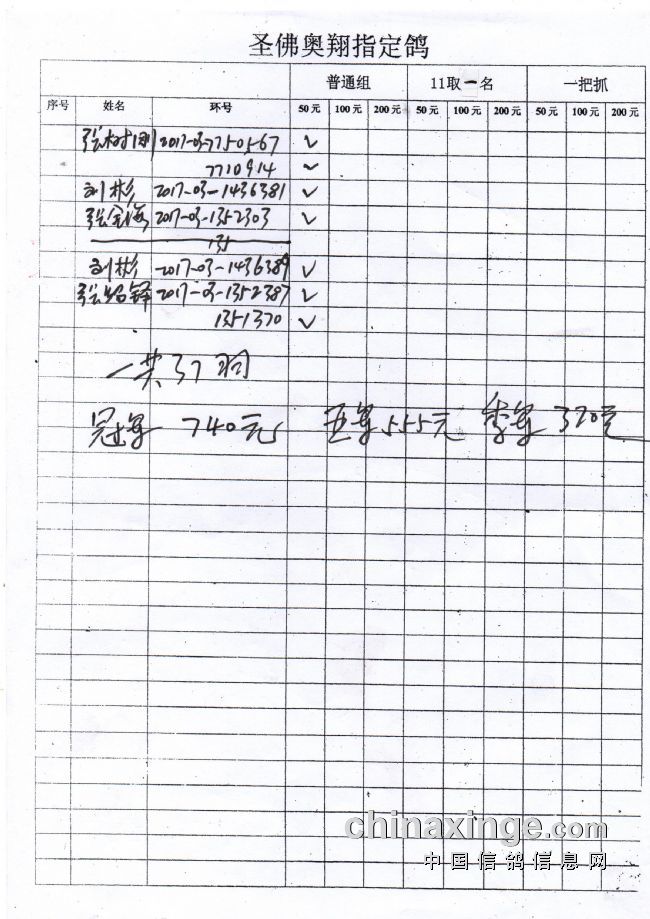 圣佛奥翔指定鸽
普通组 11取一名 一把抓
序号 姓名 环号 50元 100元 200元 50元 100元 200元 50元 100元 200元
2017-03-7750567 ✓
7710914 ✓
刘彬 2017-03-1436381 ✓
张金海 2017-03-1352303 ✓
135
刘彬 2017-03-1436389 ✓
张绍铎 2017-03-1352387 ✓
1351370 ✓
一共37羽
冠军 740元 亚军555元 季军 370元
chinaxinge.com
中国信鸽信息网